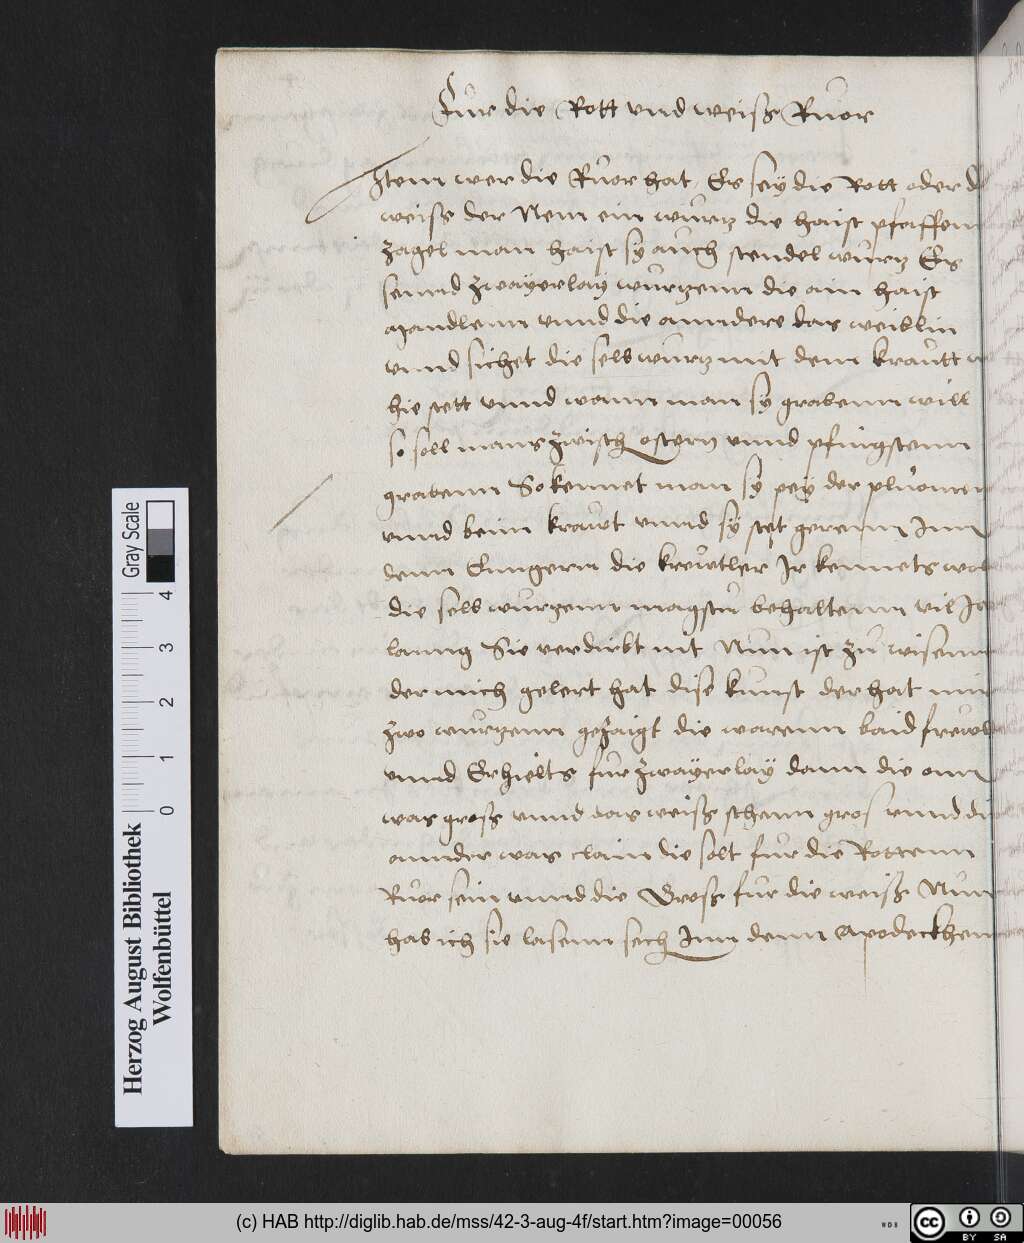 Fur die Rott vnd weiss Ruor
Item wer die Ruor hat, Es sey die Rott oder
weiss der Nem ein wurtz die haist pfaffen
zagel man haist sy auch stendel wurtz Es
sennd zwayerlay wurtzenn die ain haist
mandlenn vnnd die anndere das weiblin
vnnd sichet die selb wurtz mit dem krautt
hie stett vnnd wann man sy grabenn will
so soll mans zwisch ostern vnnd pfingstenn
grabenn So kennet man sy pey der pluomen
vnnd beim kraut vnnd sy stet gerenn Inn
denn die kreutler Ir kennets wol
die selb wurtzenn magstu behaltenn vil Iar
lanng Sie verdirbt nit Nun ist zu wisenn
der mich gelert hat dise kunst der hat mir
zwo wurtzenn gezaigt die warenn baid
vnnd Er hielts fur zwayerlay dann die ann
was gross vnnd das weiss schenn gros vnnd die
annder was clain die solt fur die Rottenn
Ruor sein vnnd die Gross fur die weiss Nun
hab ich sie lasenn sech Inn denn Apodeckhen
Herzog August Bibliothek
Wolfenbüttel
0 1 2 3 4
Gray Scale
(c) HAB http://diglib.hab.de/mss/42-3-aug-4f/start.htm?image=00056
WDB
cc
BY SA